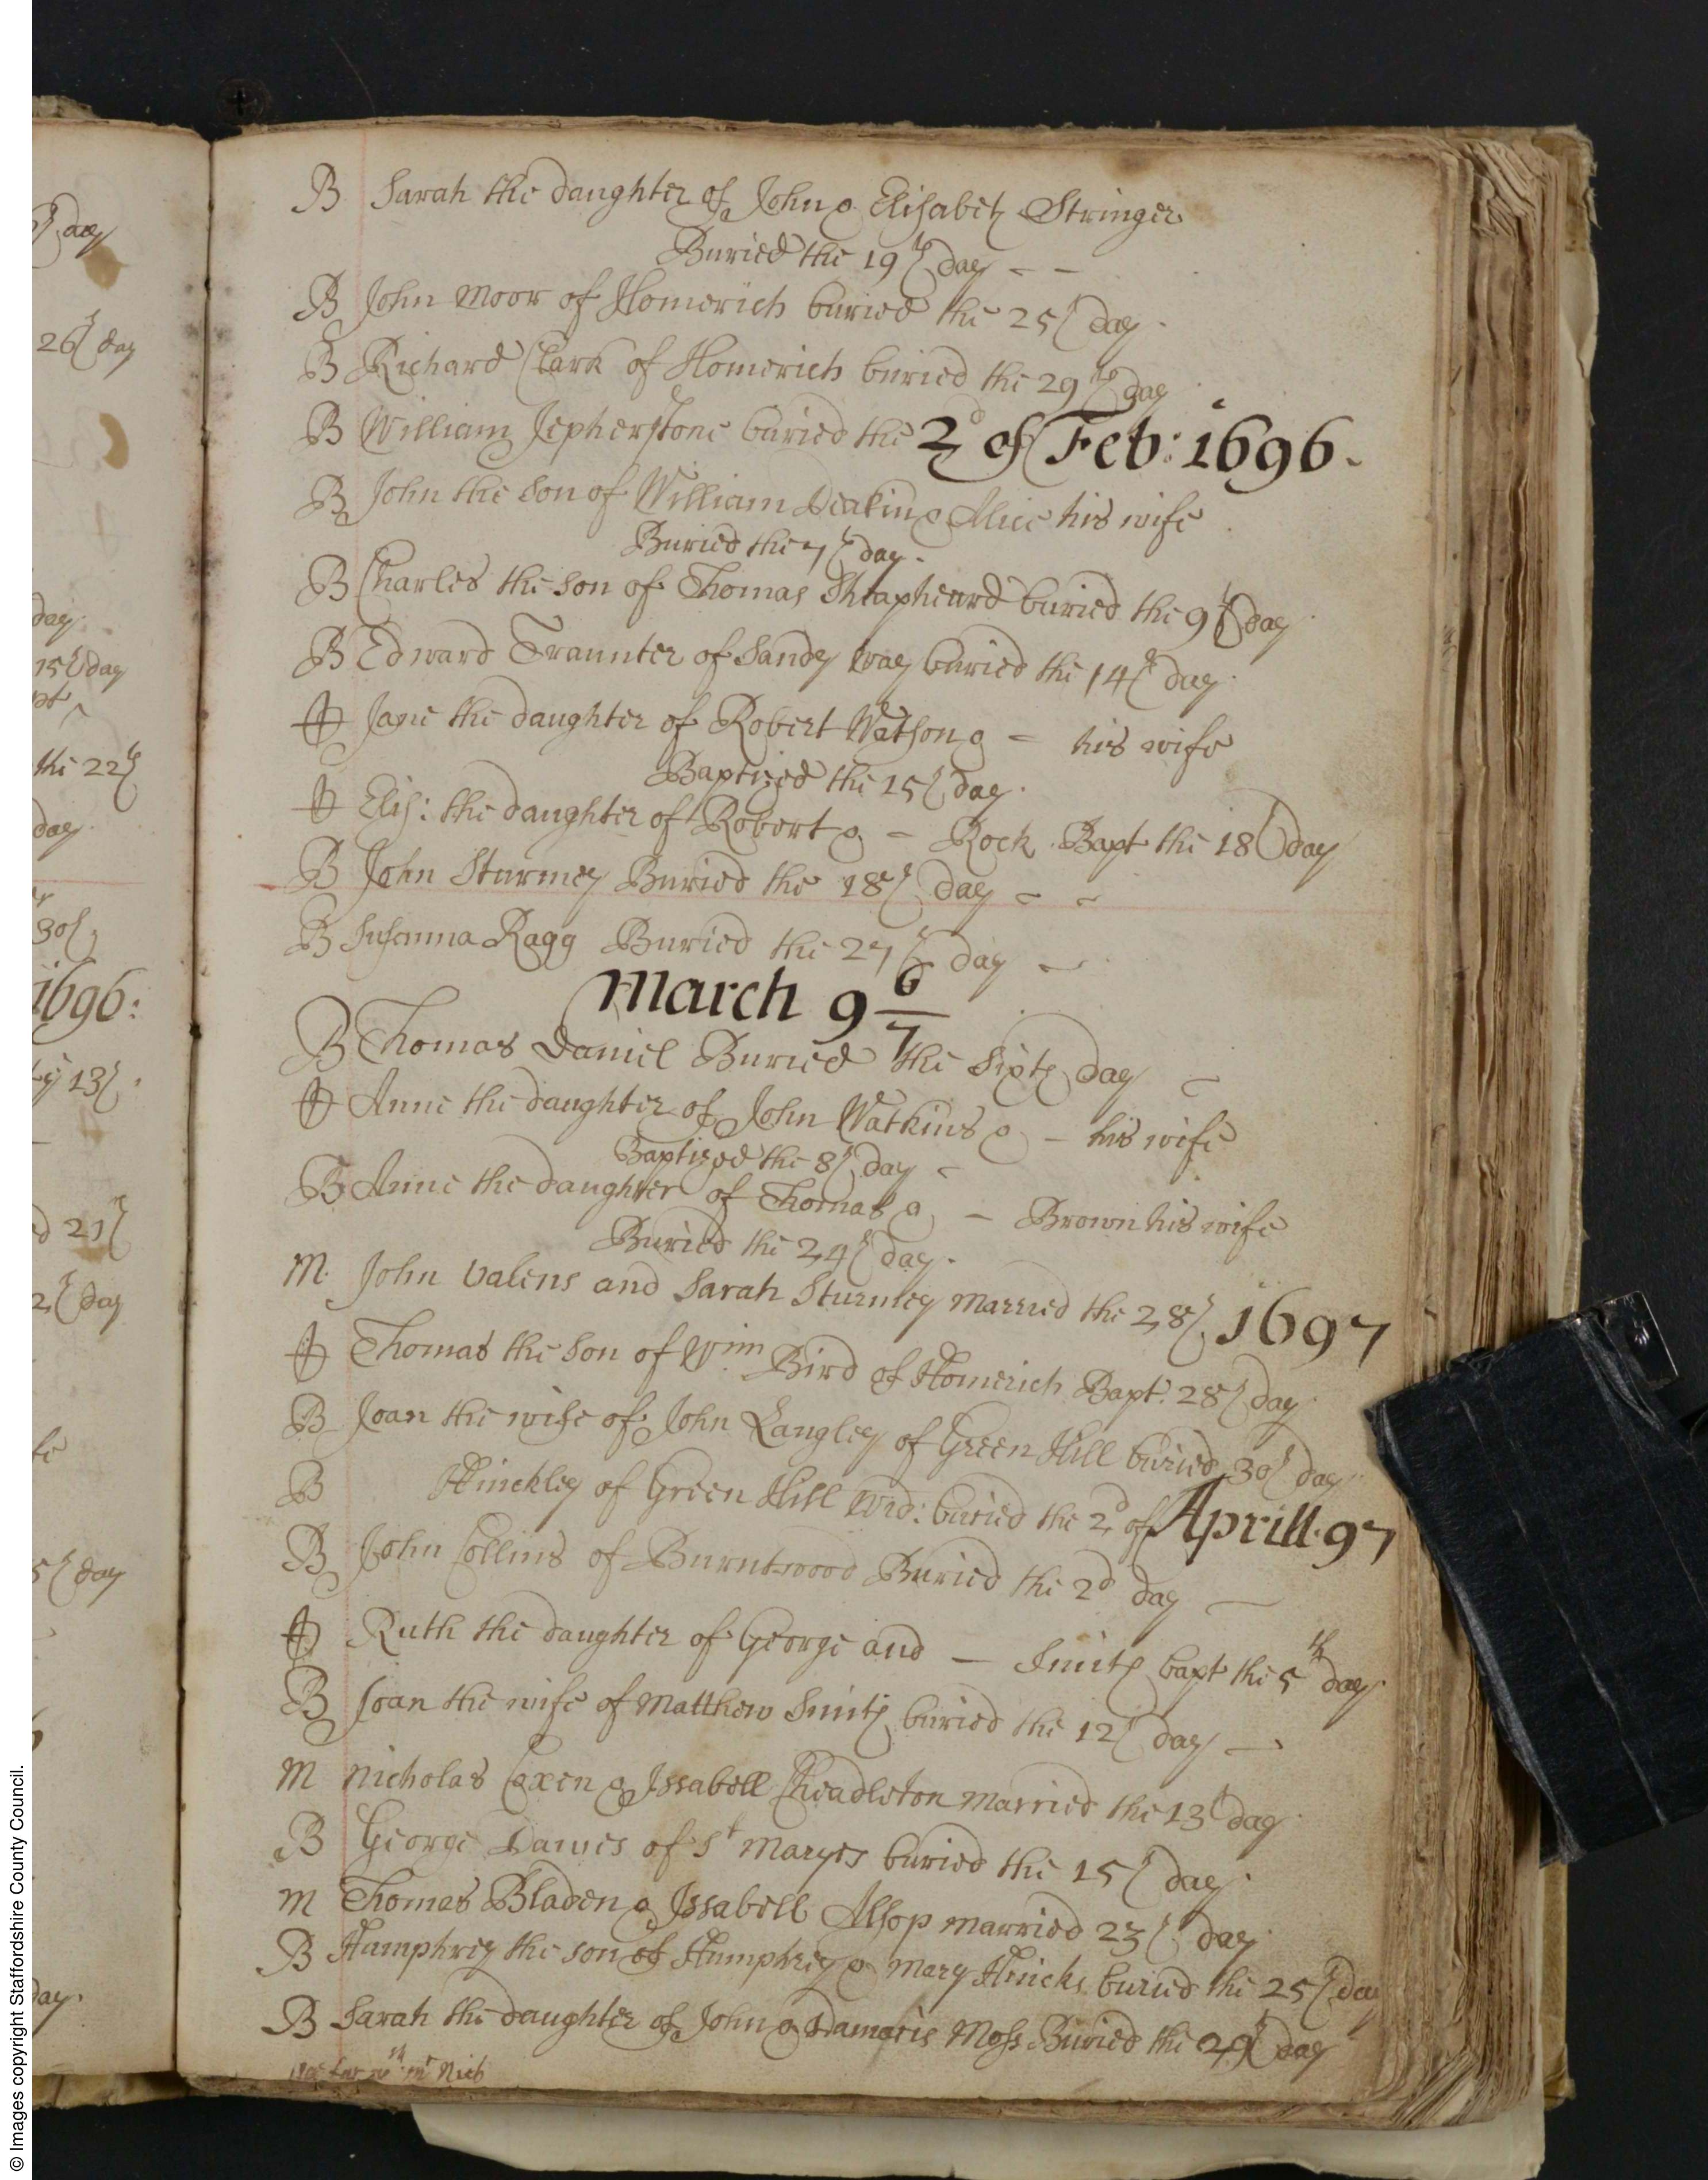 B Sarah the daughter of John & Elisabeth Stringer
Buried the 19th day - -
B John Moor of Homerich buried the 25th day
B Richard Clark of Homerich buried the 29th day
B William Jepherstone buried the 2d of Feb: 1696.
B John the son of William Deakin & Alice his wife
Buried the 7th day
B Charles the son of Thomas Sheapheard buried the 9th day
B Edward Traunter of Sandy way buried the 14th day
Jane the daughter of Robert Watson & - his wife
Baptized the 15th day
Elis: the daughter of Robert & - Rock Bapt the 18th day
B John Sturmey Buried the 18th day - -
B Susanna Ragg Buried the 27th day -
March 9 6/7
B Thomas Daniel Buried the Sixth day -
Anne the daughter of John Watkins & - his wife
Baptized the 8th day -
B Anne the daughter of Thomas & - Brown his wife
Buried the 24th day
M John Valens and Sarah Sturmey Married the 28th 1697
Thomas the son of Wim Bird of Homerich Bapt. 28th day
B Joan the wife of John Langley of Green Hill buried 30th day
B Hinckley of Green Hill Wid: buried the 2d of Aprill 97
B John Collins of Burntwood Buried the 2d day -
Ruth the daughter of George and - Smith bapt the 5th day
B Joan the wife of Matthew Smith buried the 12th day -
M Nicholas Coxen & Issabell Cheadleton Married the 13th day
B George Dawes of St Maryes buried the 15th day
M Thomas Bladen & Issabell Alsop married 23th day
B Humphrey the son of Humphrey & Mary Hincks buried the 25th day
B Sarah the daughter of John & Damaris Moss Buried the 29th day
mr Nich
day
26th day
day
15th day
the 22th
day
30th
1696:
13th
21th
day
5th day
day.
© Images copyright Staffordshire County Council.